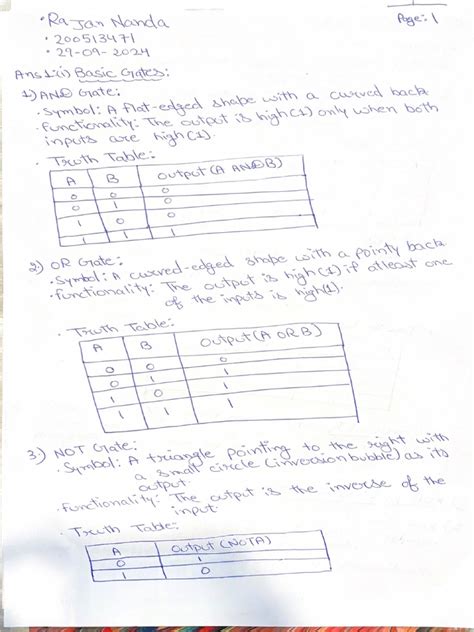 Page: 1
• Rajan Nanda
• 200513471
• 27-09-2024
Ans1:(i) Basic Gates:
1) AND Gate:
• Symbol: A flat-edged shape with a curved back
• Functionality: The output is high(1) only when both
inputs are high(1).
• Truth Table:
A B Output (A AND B)
0 0 0
0 1 0
1 0 0
1 1 1
2) OR Gate:
• Symbol: A curved-edged shape with a pointy back
• Functionality: The output is high(1) if atleast one
of the inputs is high(1).
• Truth Table:
A B Output (A OR B)
0 0 0
0 1 1
1 0 1
1 1 1
3) NOT Gate:
• Symbol: A triangle pointing to the right with
a small circle (inversion bubble) as its
output.
• Functionality: The output is the inverse of the
input.
• Truth Table:
A Output (NOTA)
0 1
1 0